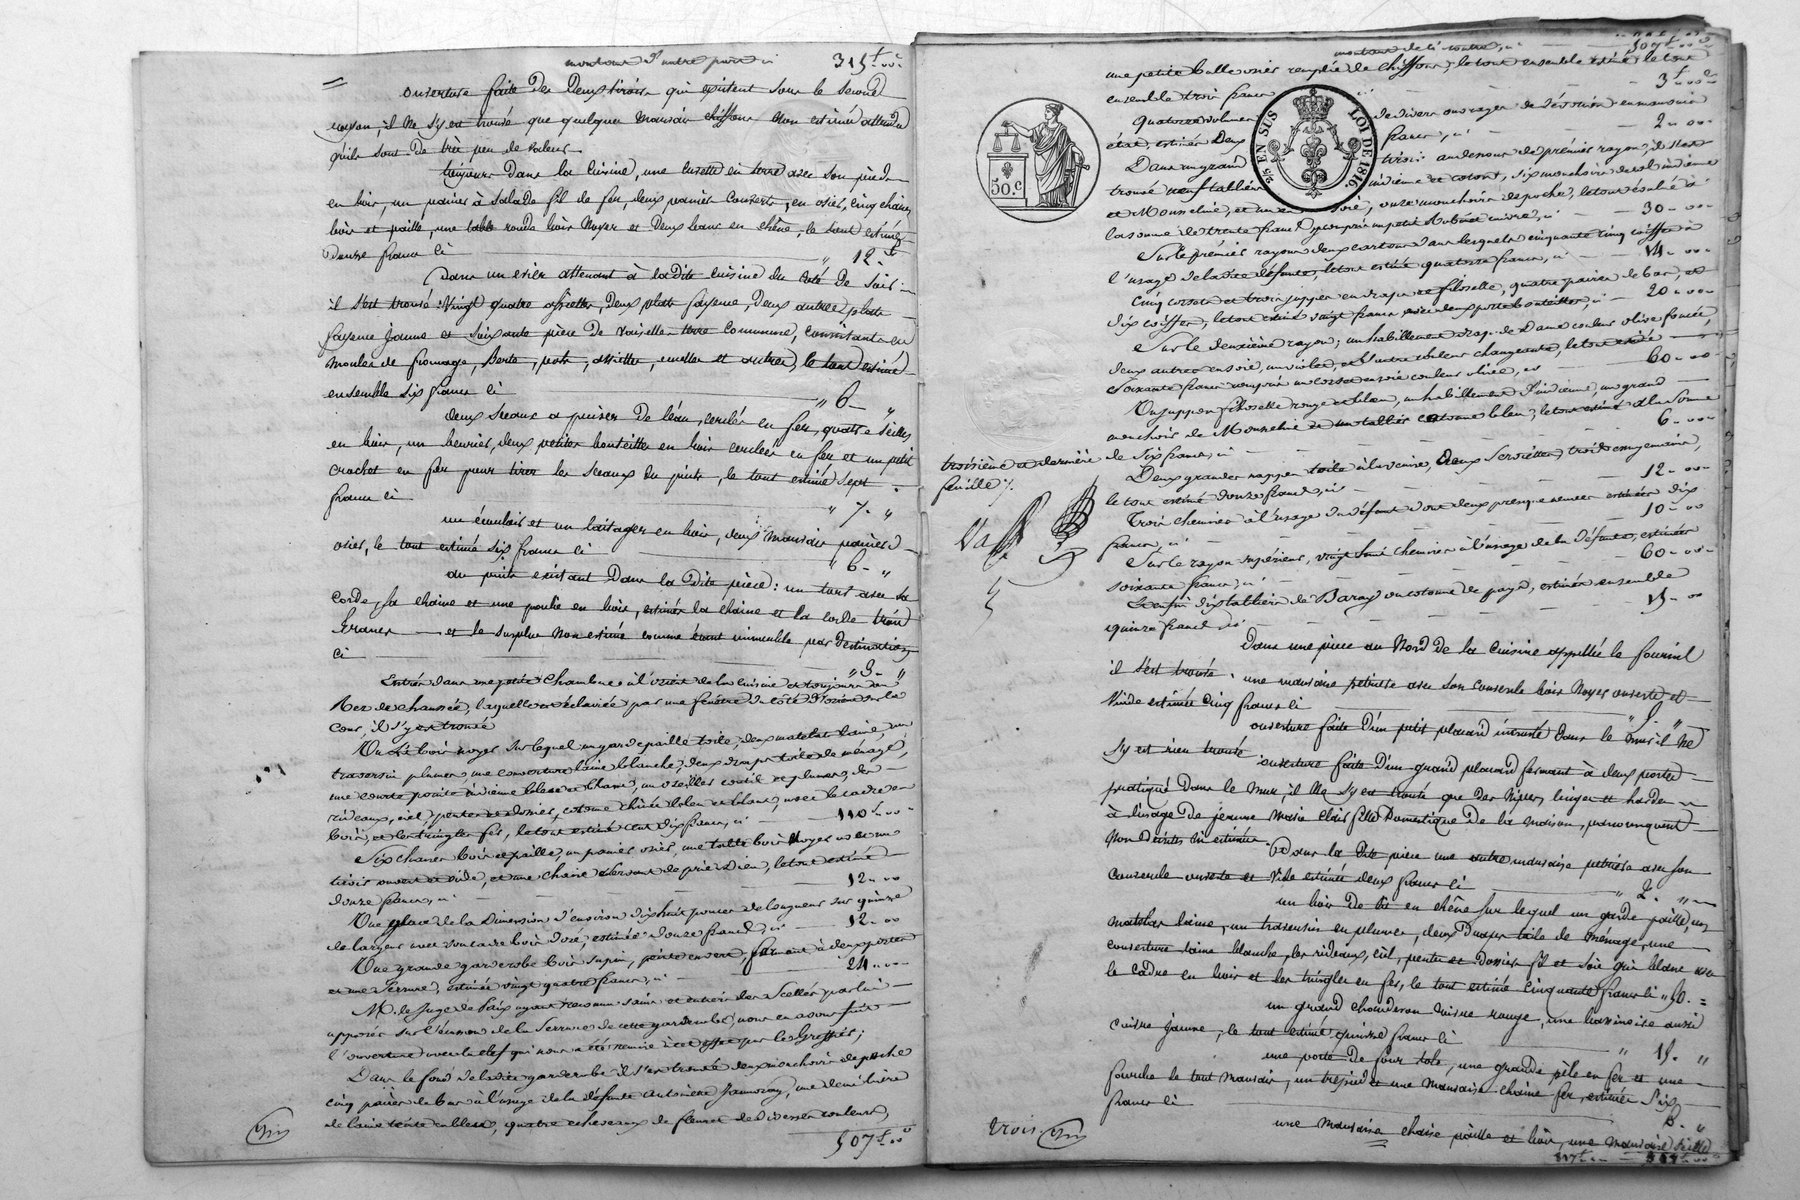 montant d'autre part ci 315 f 00 c
ouverture faite des deux tiroirs qui existent sous le second
rayon, il ne s'y est trouvé que quelques mauvais chiffons non estimés attendu
qu'ils sont de très peu de valeur
toujours dans la cuisine, une cuvette en terre avec son pied
en bois, un panier à salade fil de fer, deux paniers couverts, en osier, cinq chaises
bois et paille, une table ronde bois noyer et deux bancs en chêne, le tout estimé
douze francs ci " 12 "
Dans un evier attenant à ladite cuisine du coté de soir
il s'est trouvé vingt quatre assiettes, deux plats fayence, deux autres plats
fayence jaune et soixante pièces de vaisselle terre commune, consistant en
moules de fromage, pots, assiettes, et autres, le tout estimé
ensemble six francs ci " 6 "
deux sceaux a puiser de l'eau, cerclés en fer, quatre seilles
en bois, un beurrier, deux petites bouteilles en bois cerclées en fer et un petit
crochet en fer pour tirer les sceaux du puits, le tout estimé sept
francs ci " 7 "
un et un laitager en bois, deux mauvais paniers
osier, le tout estimé six francs ci " 6 "
au puits existant dans la dite pièce : un tour avec sa
corde, sa chaine et une poulie en bois, estimés la chaine et la corde trois
francs et le surplus non estimé comme étant immeuble par destination
ci " 3 "
Entrés dans une petite chambre à l'orient de la cuisine et toujours au
rez de chaussée, laquelle est éclairée par une fenêtre du côté d'orient sur la
cour, il s'y est trouvé
Un lit bois noyer sur lequel un garde paille toile, deux matelas laine, un
traversin plumes, une couverture laine blanche, deux draps toile de ménage,
une courte pointe indienne bleue et blanc, un oreiller coutil et plumes, des
rideaux, ciel, pentes et dossier, cotonne rayée bleu et blanc, avec le cadre en
bois, et les tringles fer, le tout estimé cent dix francs, ci 110 f 00
Six chaises bois et paille, un panier osier, une table bois noyer avec un
tiroir ouvert et vide, et une chaise servant de prie Dieu, le tout estimé
douze francs, ci 12 - 00
Une glace de la dimension d'environ dix huit pouces de longueur sur quinze
de largeur avec son cadre bois doré, estimée douze francs, ci 12 - 00
Une grande garderobe bois sapin, peinte en vert, fermant à deux portes
et une serrure, estimée vingt quatre francs, ci 24 - 00
M. le Juge de Paix ayant reconnu sains et entiers les scellés par lui
apposés sur l'entrée de la serrure de cette garderobe, nous en avons fait
l'ouverture avec la clef qui nous a été remise à cet effet par le Greffier;
Dans le fond de ladite garderobe il s'est trouvé deux mouchoirs de poche
cinq paires de bas à l'usage de la défunte Antoinette, une demi livre
de laine teinte en bleu, quatre echeveaux de fleuret de diverses couleurs,
507 f 00 c
montant de ci contre, ci 507 f 00 c
une petite balle osier remplie de chiffons, le tout ensemble estimé le tout
ensemble trois francs 3 f 00 c
Quatorze volumes de divers ouvrages de dévotion en mauvais
état, estimés deux francs, ci 2 - 00
Dans un grand tiroir au dessous du premier rayon, il s'est
trouvé neuf tabliers indienne et coton, six mouchoirs de col indienne
et mousseline, et un en soie, onze mouchoirs de poche, le tout évalué à
la somme de trente francs, y compris un petit cuivre, ci 30 - 00
Sur le premier rayon deux cartons dans lesquels cinquante cinq coiffes à
l'usage de ladite défunte, le tout estimé quatorze francs, ci 14 - 00
Cinq corsets et trois juppes en drap et filoselle, quatre paires de bas, et
dix coiffes, le tout estimé vingt francs avec deux porte bouteilles, ci 20 - 00
Sur le deuxième rayon; un habillement drap de Dame couleur olive foncée,
deux autres en soie, un violet, et l'autre couleur changeante, le tout estimé
soixante francs compris un corset en soie couleur olive, ci 60 - 00
Un juppon filoselle rouge et bleu, un habillement d'indienne, un grand
mouchoir de mousseline et un tablier cotonne bleu, le tout estimé à la somme
de six francs, ci 6 - 00
Deux grandes nappes toile à la venise, deux serviettes, treize
le tout estimé douze francs, ci 12 - 00
troisième et dernière
feuille /.
Trois chemises à l'usage du défunt dont deux presque neuves estimées dix
francs, ci 10 - 00
Sur le rayon supérieur, vingt sept chemises à l'usage de la défunte, estimées
soixante francs, ci 60 - 00
Enfin dix tabliers de ou cotonne de pays, estimés ensemble
quinze francs, ci 15 - 00
Dans une pièce au nord de la cuisine appellée le fournil
il s'est trouvé : une mauvaise petrisse avec son couvercle bois noyer ouverte et
vuide estimée cinq francs ci " 5 "
ouverture faite d'un petit placard incrusté dans le mur il ne
s'y est rien trouvé
ouverture faite d'un grand placard fermant à deux portes
pratiqué dans le mur, il ne s'y est trouvé que des nipes, linges et hardes
à l'usage de jeanne marie fille domestique de la maison, par conséquent
non décrits ni estimés. Dans la dite pièce une autre mauvaise petrisse avec son
couvercle ouverte et vide estimée deux francs ci " 2 "
un bois de lit en chêne sur lequel un garde paille, un
matelas laine, un traversin en plumes, deux draps toile de ménage, une
couverture laine blanche, les rideaux, ciel, pente et dossier fil et soie gris blanc avec
le cadre en bois et les tringles en fer, le tout estimé cinquante francs ci " 50 - "
un grand chauderon cuivre rouge, une bassinoire aussi
cuivre jaune, le tout estimé quinze francs ci " 15 "
une porte de four tole, une grande pèle en fer et une
fourche le tout mauvais, un trepied et une mauvaise chaine fer, estimés six
francs ci 6 - "
une mauvaise chaise paille et bois, une mauvaise seille
trois.
50. c
25 EN SUS LOI DE 1816.